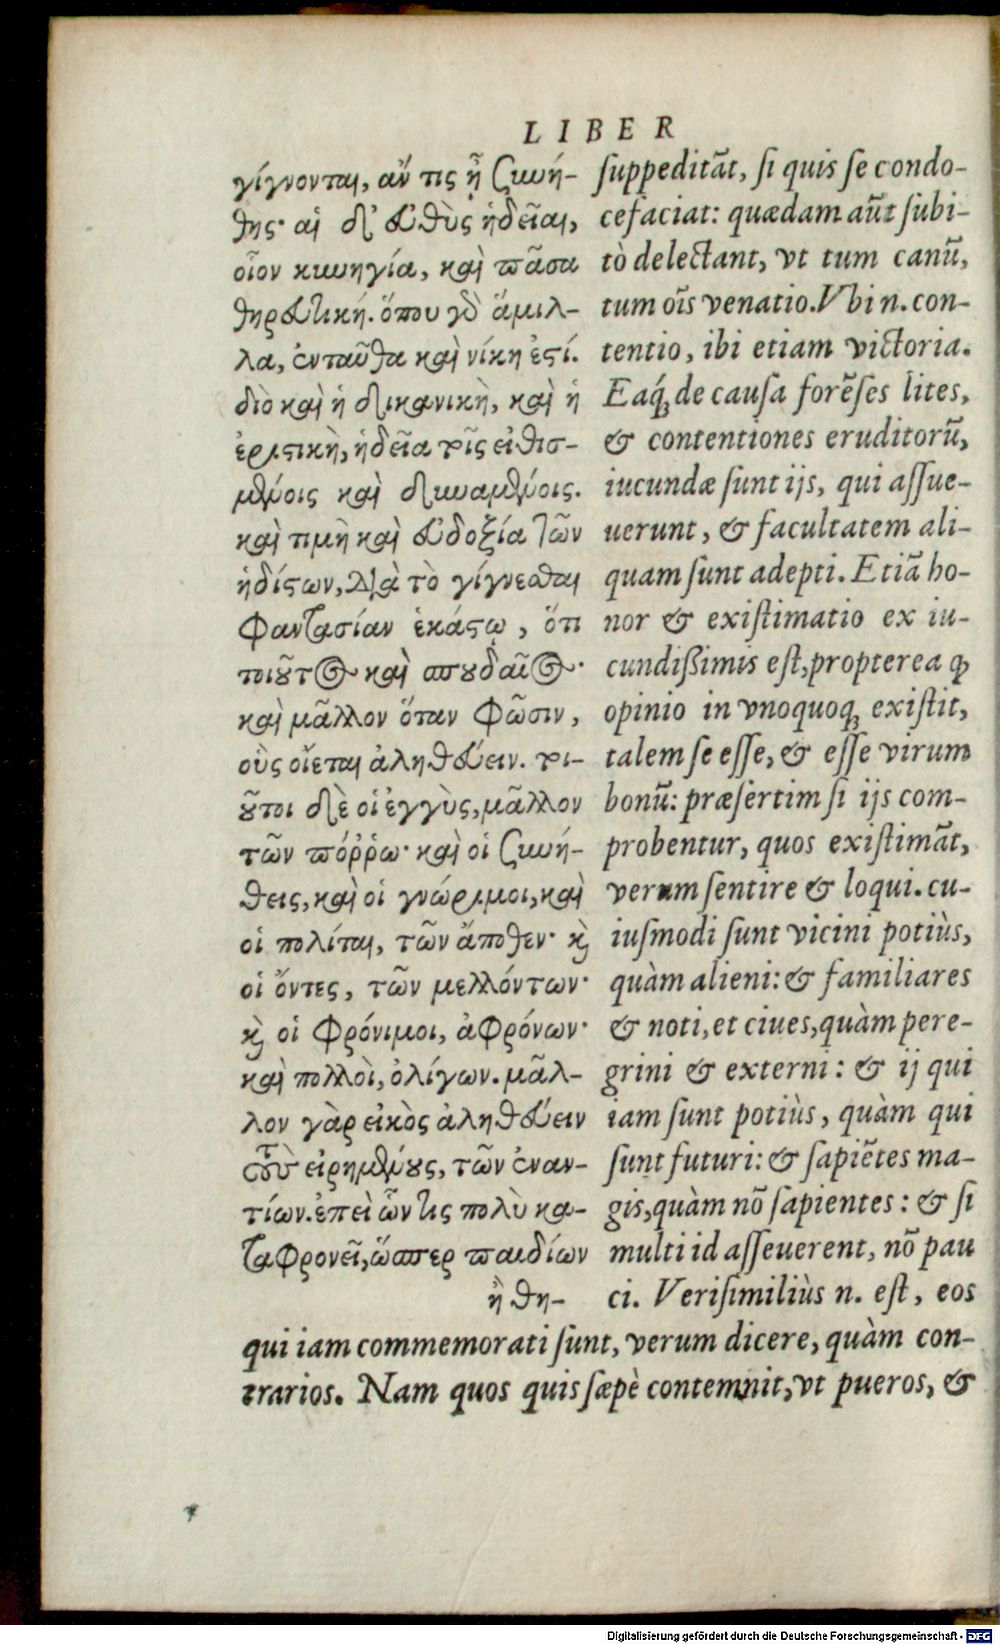 LIBER
γίγνονται, ἄν τις ᾖ συνή-
θης· αἱ δ' εὐθὺς ἡδεῖαι,
οἷον κυνηγία, καὶ πᾶσα
θηρευτική. ὅπου γὸ ἅμιλ-
λα, ἐνταῦθα καὶ νίκη ἐστί.
διὸ καὶ ἡ δικανικὴ, καὶ ἡ
ἐριστικὴ, ἡδεῖα τοῖς εἰθισ-
μένοις καὶ δυναμένοις.
καὶ τιμὴ καὶ εὐδοξία τῶν
ἡδίστων, διὰ τὸ γίγνεσθαι
φαντασίαν ἑκάστῳ, ὅτι
τοιοῦτος καὶ σπουδαῖος·
καὶ μᾶλλον ὅταν φῶσιν,
οὓς οἴεται ἀληθεύειν. τοι-
οῦτοι δὲ οἱ ἐγγὺς, μᾶλλον
τῶν πόῤῥω· καὶ οἱ συνή-
θεις, καὶ οἱ γνώριμοι, καὶ
οἱ πολίται, τῶν ἄποθεν· κὶ
οἱ ὄντες, τῶν μελλόντων·
κὶ οἱ φρόνιμοι, ἀφρόνων·
καὶ πολλοὶ, ὀλίγων. μᾶλ-
λον γὰρ εἰκὸς ἀληθεύειν
τοὺς εἰρημένους, τῶν ἐναν-
τίων. ἐπεὶ ὧν τις πολὺ κα-
ταφρονεῖ, ὥσπερ παιδίων
ἢ θη-
suppeditāt, si quis se condo-
cefaciat: quædam aūt subi-
tò delectant, vt tum canū,
tum oīs venatio. Vbi n. con-
tentio, ibi etiam victoria.
Eaq́; de causa forēses lites,
& contentiones eruditorū,
iucundæ sunt ijs, qui assue-
uerunt, & facultatem ali-
quam sunt adepti. Etiā ho-
nor & existimatio ex iu-
cundißimis est, propterea ꝙ
opinio in vnoquoq; existit,
talem se esse, & esse virum
bonū: præsertim si ijs com-
probentur, quos existimāt,
verum sentire & loqui. cu-
iusmodi sunt vicini potiùs,
quàm alieni: & familiares
& noti, et ciues, quàm pere-
grini & externi: & ij qui
iam sunt potiùs, quàm qui
sunt futuri: & sapiētes ma-
gis, quàm nō sapientes: & si
multi id asseuerent, nō pau
ci. Verisimiliùs n. est, eos
qui iam commemorati sunt, verum dicere, quàm con-
trarios. Nam quos quis sæpè contemnit, vt pueros, &
Digitalisierung gefördert durch die Deutsche Forschungsgemeinschaft - DFG